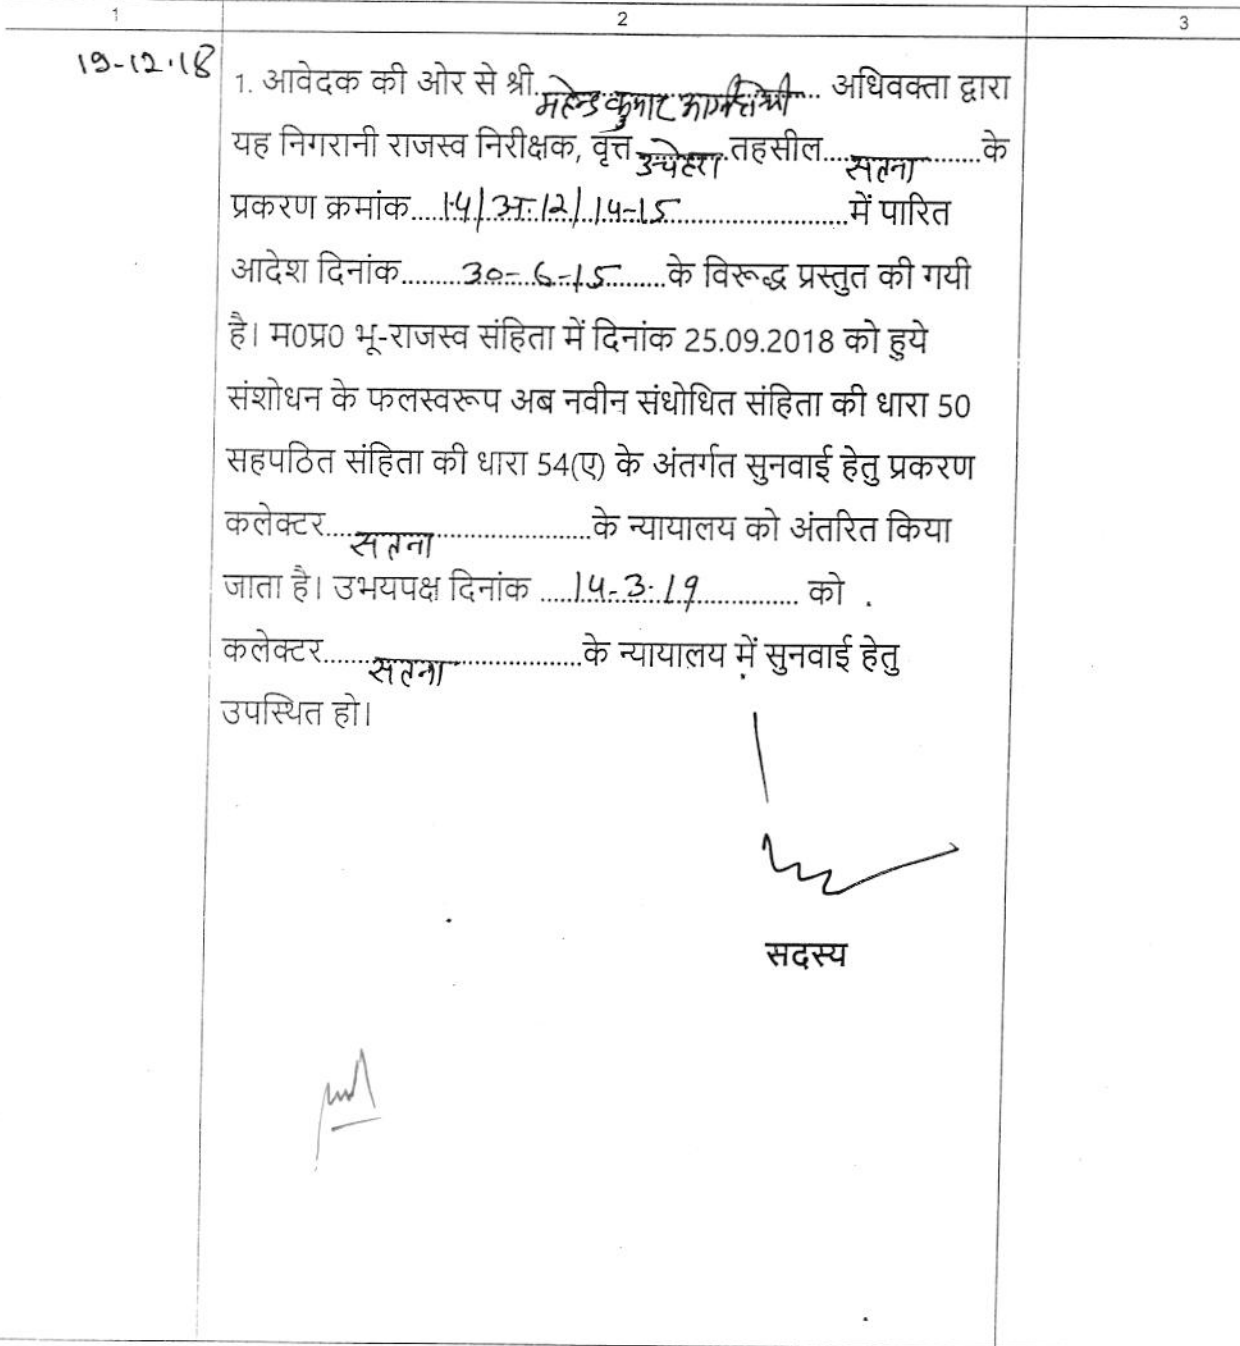 1 2 3
19-12-18
1. आवेदक की ओर से श्री महेन्द्र कुमार अग्निहोत्री अधिवक्ता द्वारा
यह निगरानी राजस्व निरीक्षक, वृत्त उचेहरा तहसील सतना के
प्रकरण क्रमांक 14/अ-12/14-15 में पारित
आदेश दिनांक 30-6-15 के विरूद्ध प्रस्तुत की गयी
है। म0प्र0 भू-राजस्व संहिता में दिनांक 25.09.2018 को हुये
संशोधन के फलस्वरूप अब नवीन संधोधित संहिता की धारा 50
सहपठित संहिता की धारा 54(ए) के अंतर्गत सुनवाई हेतु प्रकरण
कलेक्टर सतना के न्यायालय को अंतरित किया
जाता है। उभयपक्ष दिनांक 14-3-19 को
कलेक्टर सतना के न्यायालय में सुनवाई हेतु
उपस्थित हो।
सदस्य